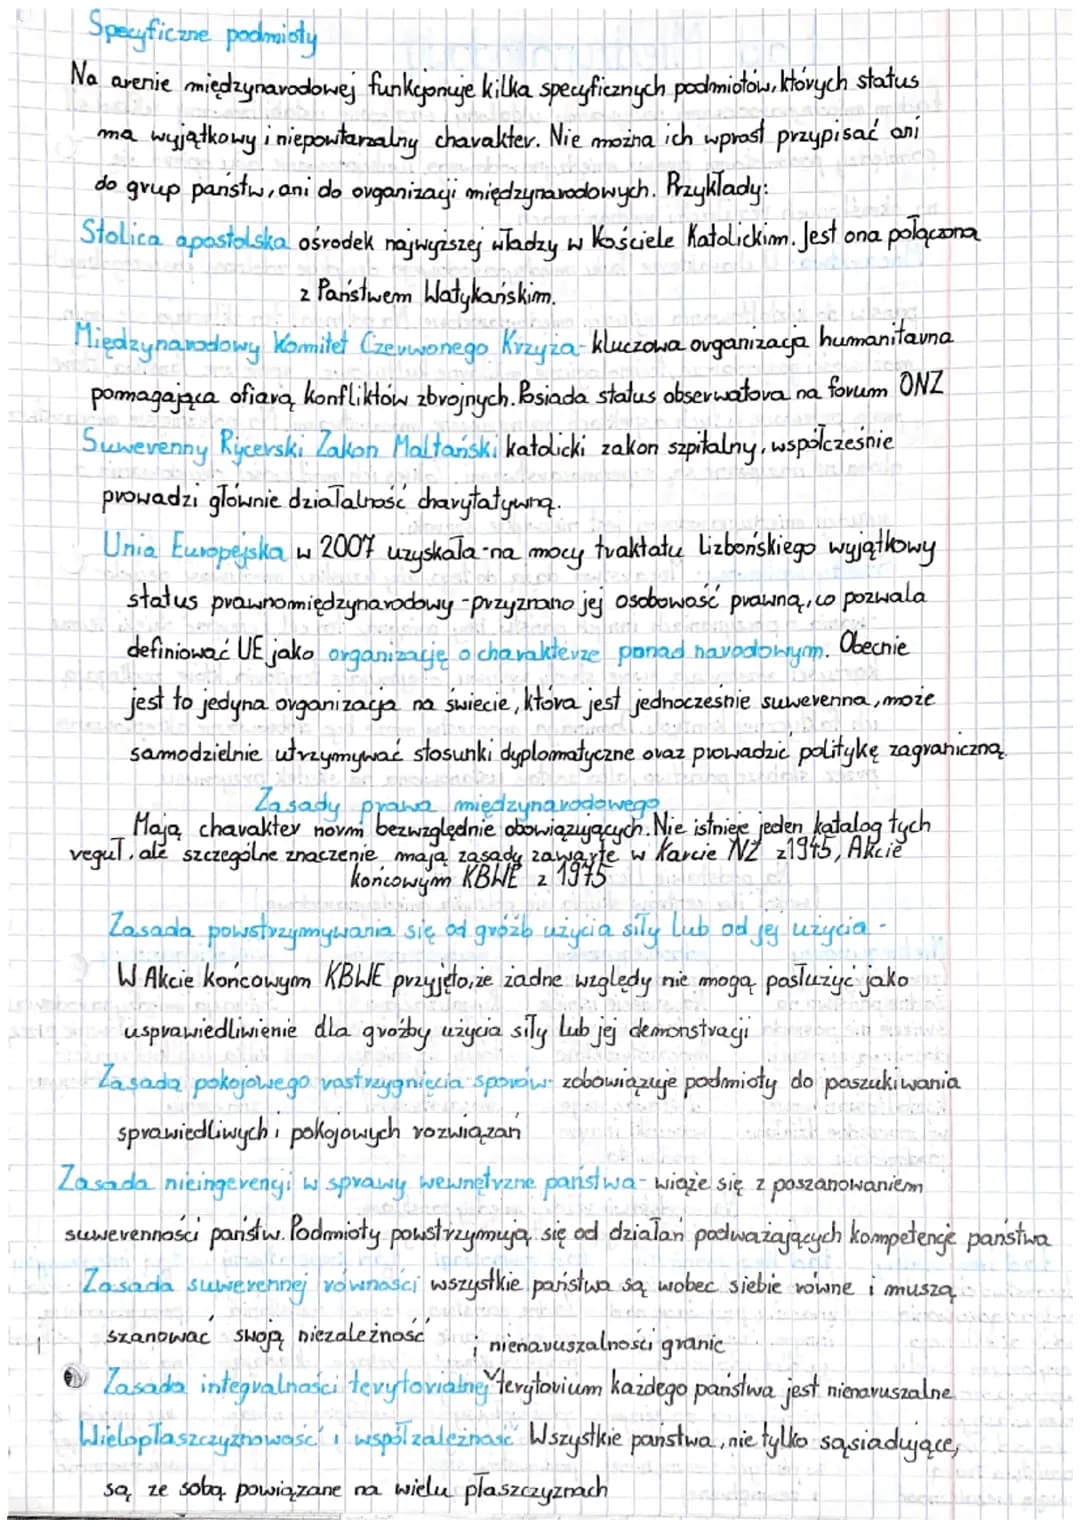 Specyficzne podmioty
Na arenie międzynarodowej funkcjonuje kilka specyficznych podmiotów, których status
ma wyjątkowy i niepowtarzalny charakter. Nie można ich wprost przypisać ani
do grup państw, ani do organizacji międzynarodowych. Przykłady:
Stolica apostolska ośrodek najwyższej władzy w Kościele Katolickim. Jest ona połączona
z Państwem Watykańskim.
Międzynarodowy Komitet Czerwonego Krzyża - kluczowa organizacja humanitarna
pomagająca ofiarą konfliktów zbrojnych. Posiada status obserwatora na forum ONZ
Suwerenny Rycerski Zakon Maltański katolicki zakon szpitalny, współcześnie
prowadzi głównie działalność charytatywną.
Unia Europejska w 2007 uzyskała - na mocy traktatu Lizbońskiego wyjątkowy
status prawnomiędzynarodowy - przyznano jej osobowość prawną, co pozwala
definiować UE jako organizację o charakterze ponad narodowym. Obecnie
jest to jedyna organizacja na świecie, która jest jednocześnie suwerenna, może
samodzielnie utrzymywać stosunki dyplomatyczne oraz prowadzić politykę zagraniczną.
Zasady prawa międzynarodowego
Mają charakter norm bezwzględnie obowiązujących. Nie istnieje jeden katalog tych
reguł, ale szczególne znaczenie mają zasady zawarte w Karcie NZ z 1945, Akcie
końcowym KBWE z 1975
Zasada powstrzymywania się od gróźb użycia siły lub od jej użycia -
W Akcie końcowym KBWE przyjęto, że żadne względy nie mogą posłużyć jako
usprawiedliwienie dla groźby użycia siły lub jej demonstracji
Zasada pokojowego rostrzygnięcia sporów - zobowiązuje podmioty do poszukiwania
sprawiedliwych i pokojowych rozwiązań
Zasada nieingerencji w sprawy wewnętrzne państwa - wiąże się z poszanowaniem
suwerenności państw. Podmioty powstrzymują się od działań podważających kompetencje państwa
Zasada suwerennej równości wszystkie państwa są wobec siebie równe i muszą
szanować swoją niezależność
i nienaruszalności granic
Zasada integralności terytorialnej terytorium każdego państwa jest nienaruszalne
Wielopłaszczyznowość i współzależność Wszystkie państwa, nie tylko sąsiadujące,
są ze sobą powiązane na wielu płaszczyznach